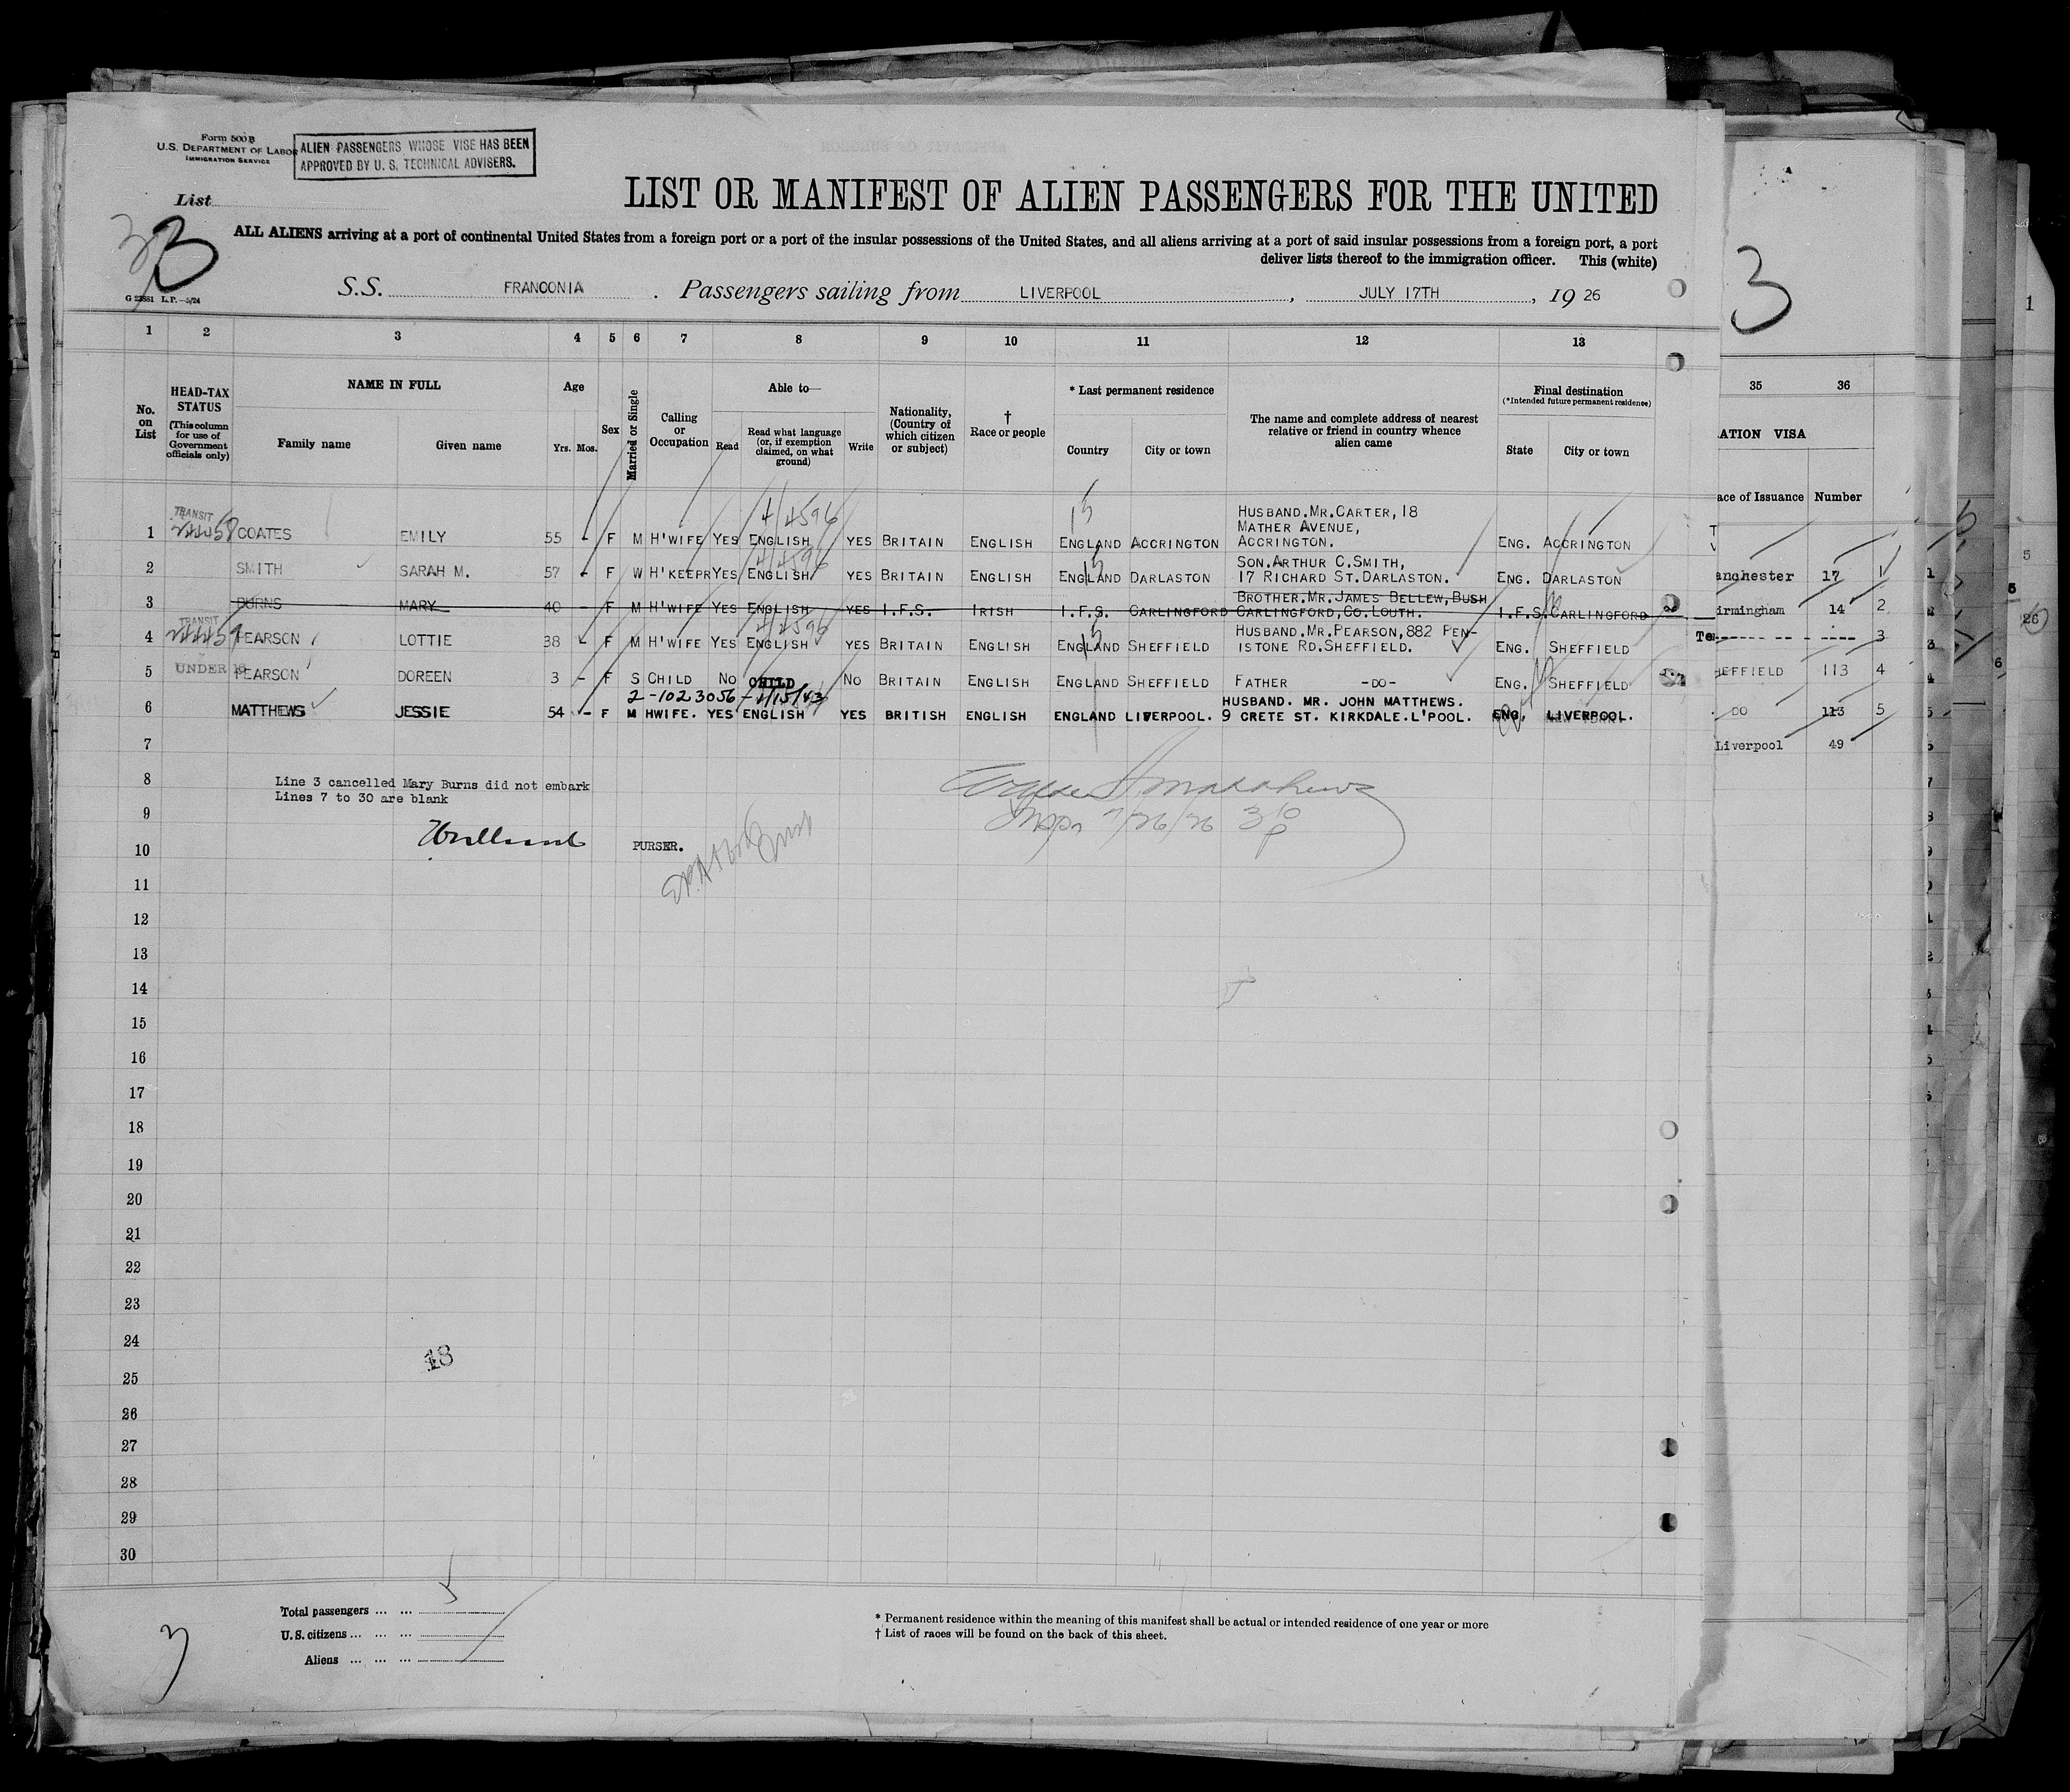 Form 500 B
U.S. DEPARTMENT OF LABOR
IMMIGRATION SERVICE
ALIEN PASSENGERS WHOSE VISE HAS BEEN
APPROVED BY U. S. TECHNICAL ADVISERS.
List
3
LIST OR MANIFEST OF ALIEN PASSENGERS FOR THE UNITED
ALL ALIENS arriving at a port of continental United States from a foreign port or a port of the insular possessions of the United States, and all aliens arriving at a port of said insular possessions from a foreign port, a port
deliver lists thereof to the immigration officer. This (white)
L.P.—5/24
S.S. FRANCONIA . Passengers sailing from LIVERPOOL , JULY 17TH , 19 26
3
1 2 3 4 5 6 7 8 9 10 11 12 13
35 36
No. on List
HEAD-TAX STATUS (This column for use of Government officials only)
NAME IN FULL
Family name Given name
Age
Yrs. Mos.
Sex
Married or Single
Calling or Occupation
Able to—
Read
Read what language (or, if exemption claimed, on what ground)
Write
Nationality, (Country of which citizen or subject)
† Race or people
* Last permanent residence
Country City or town
The name and complete address of nearest relative or friend in country whence alien came
Final destination
(*Intended future permanent residence)
State City or town
ATION VISA
ace of Issuance Number
HUSBAND.MR.CARTER,18
TRANSIT 4/4596 13 MATHER AVENUE,
1 COATES EMILY 55 - F M H'WIFE YES ENGLISH YES BRITAIN ENGLISH ENGLAND ACCRINGTON ACCRINGTON. ENG. ACCRINGTON
4/4596 SON.ARTHUR C.SMITH,
2 SMITH SARAH M. 57 - F W H'KEEPR YES ENGLISH YES BRITAIN ENGLISH ENGLAND DARLASTON 17 RICHARD ST.DARLASTON. ENG. DARLASTON
BROTHER.MR.JAMES BELLEW,BUSH
3 BURNS MARY 40 - F M H'WIFE YES ENGLISH YES I.F.S. IRISH I.F.S. CARLINGFORD CARLINGFORD,CO.LOUTH. I.F.S. CARLINGFORD
TRANSIT 4/4596 13 HUSBAND.MR.PEARSON,882 PEN-
4 PEARSON LOTTIE 38 - F M H'WIFE YES ENGLISH YES BRITAIN ENGLISH ENGLAND SHEFFIELD ISTONE RD.SHEFFIELD. ENG. SHEFFIELD
5 UNDER 16 PEARSON DOREEN 3 - F S CHILD NO CHILD NO BRITAIN ENGLISH ENGLAND SHEFFIELD FATHER -DO- ENG. SHEFFIELD
2-1023056-4/15/43 HUSBAND. MR. JOHN MATTHEWS.
6 MATTHEWS JESSIE 54 - F M HWIFE. YES ENGLISH YES BRITISH ENGLISH ENGLAND LIVERPOOL. 9 CRETE ST. KIRKDALE.L'POOL. ENG. LIVERPOOL.
anchester 17 1
irmingham 14 2
---- 3
HEFFIELD 113 4
DO 113 5
Liverpool 49
7
8 Line 3 cancelled Mary Burns did not embark
Lines 7 to 30 are blank
9
10 PURSER.
Inspr 7/26/26
11
12
13
14
15
16
17
18
19
20
21
22
23
24
18
25
26
27
28
29
30
Total passengers ... ... 5
U.S. citizens ... ... ...
Aliens ... ... ...
3
* Permanent residence within the meaning of this manifest shall be actual or intended residence of one year or more
† List of races will be found on the back of this sheet.